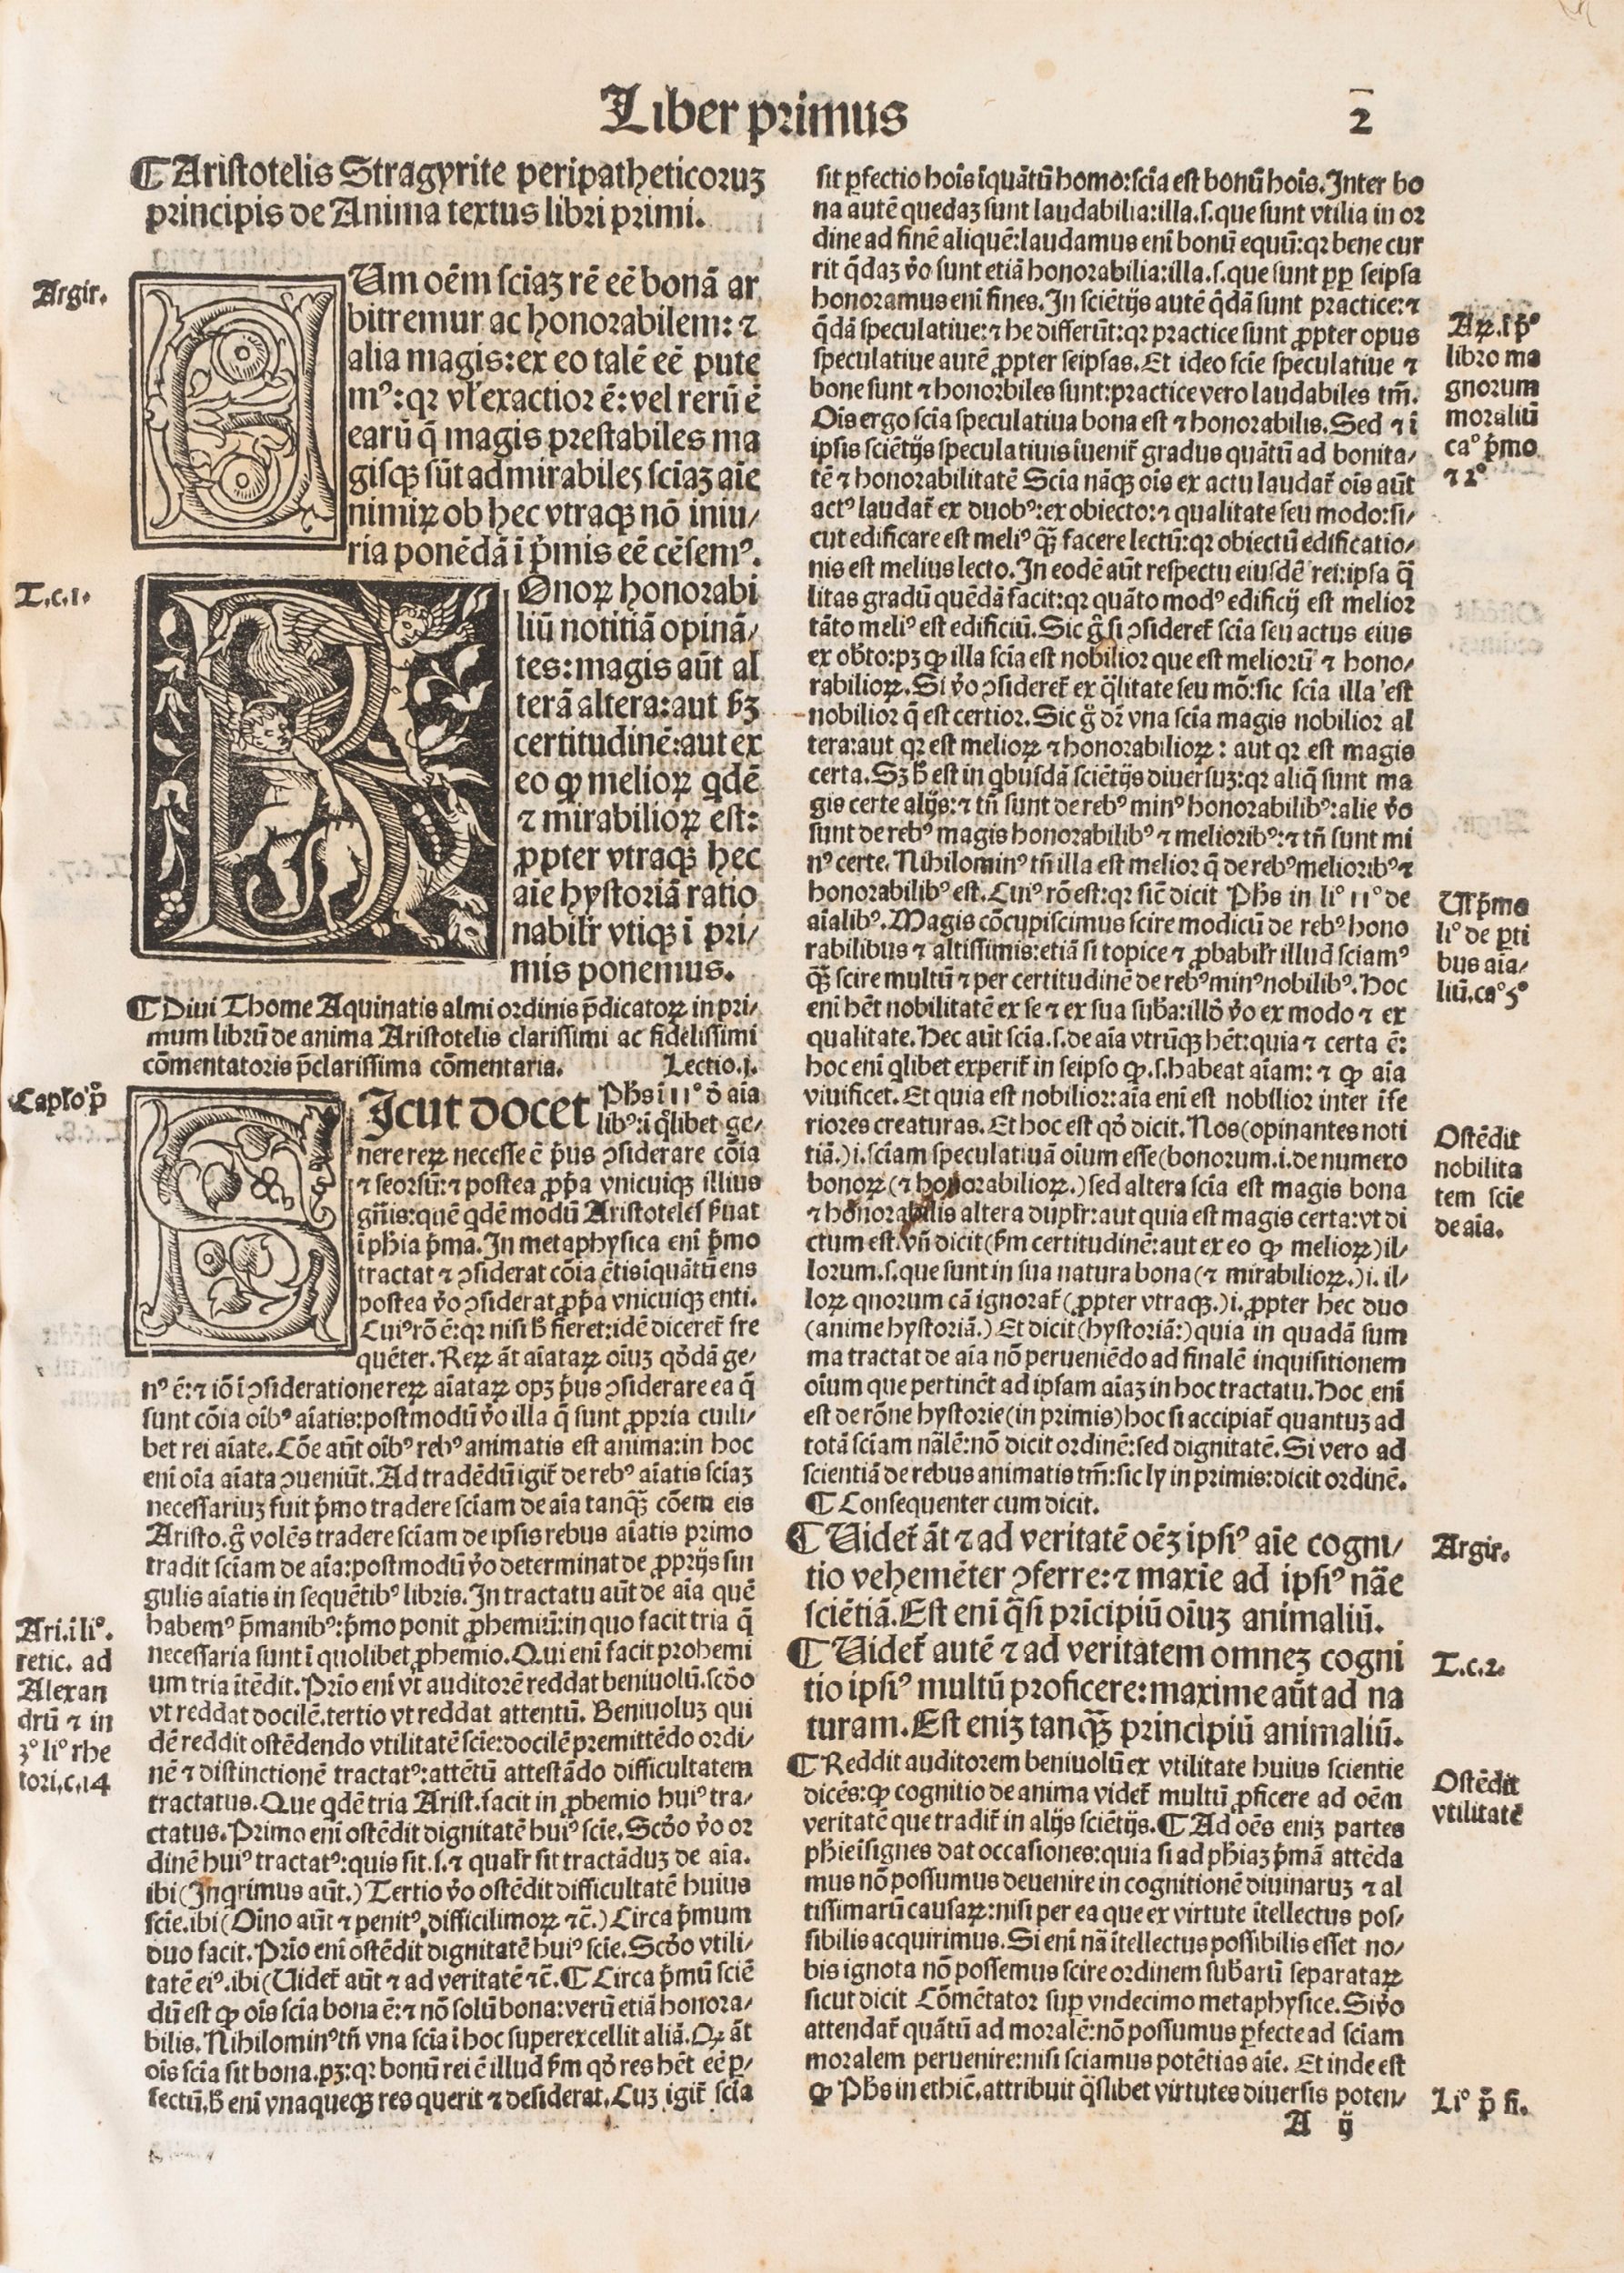 Liber primus
2
¶ Aristotelis Stragyrite peripatheticoruꝫ
principis de Anima textus libri primi.
Argir.
CUm oēm sciāꝫ rē eē bonā ar
bitremur ac honorabilem: ⁊
alia magis: ex eo talē eē pute
mꝰ: qꝛ vl̓ exactior ē: vel rerū ē
earū q̄ magis prestabiles ma
gisqꝫ sūt admirabiles sciāꝫ aīe
nimiꝝ ob hec vtraqꝫ nō iniu/
ria ponēdā ī p̄mis eē cēsemꝰ.
T.c.1.
BOnoꝝ honorabi
liū notitiā opinā/
tes: magis aūt al
terā altera: aut ẜꝫ
certitudinē: aut ex
eo ꝙ melioꝝ qdē
⁊ mirabilioꝝ est:
ꝓpter vtraqꝫ hec
aīe hystoriā ratio
nabilr̄ vtiqꝫ ī pri/
mis ponemus.
¶ Diui Thome Aquinatis almi ordinis p̄dicatoꝝ in pri/
mum librū de anima Aristotelis clarissimi ac fidelissimi
cōmentatoris p̄clarissima cōmentaria. Lectio.j.
Caplo p̊
SIcut docet Ph̄s ī 11° ḋ aīa
libꝰ: ī q̄libet ge/
nere reꝝ necesse ē p̄us ꝯsiderare cōia
⁊ seorsū: ⁊ postea ꝓpa vnicuiqꝫ illius
gn̄is: quē qdē modū Aristoteles ẜuat
ī ph̄ia p̄ma. In metaphysica eni p̄mo
tractat ⁊ ꝯsiderat cōia ētis īquātū ens
postea v̄o ꝯsiderat ꝓpa vnicuiqꝫ enti.
Cuiꝰ rō ē: qꝛ nisi h̄ fieret: idē diceret̄ fre
quēter. Reꝝ āt aīataꝝ oīuꝫ qd̄dā ge/
nꝰ ē: ⁊ iō ī ꝯsideratione reꝝ aīataꝝ opꝫ p̄us ꝯsiderare ea q̄
sunt cōia oībꝰ aīatis: postmodū v̄o illa q̄ sunt ꝓpria cuili/
bet rei aīate. Cōe aūt oībꝰ rebꝰ animatis est anima: in hoc
eni oīa aīata ꝯueniūt. Ad tradēdū igit̄ de rebꝰ aīatis sciāꝫ
necessariuꝫ fuit p̄mo tradere sciam de aīa tanqꝫ̄ cōem eis
Aristo. g̊ volēs tradere sciam de ipsis rebus aīatis primo
tradit sciam de aīa: postmodū v̄o determinat de ꝓprijs sin
gulis aīatis in sequētibꝰ libris. In tractatu aūt de aīa quē
habemꝰ p̄ manibꝰ: p̄mo ponit ꝓhemiū: in quo facit tria q̄
Ari. ī li°.
retic. ad
Alexan
drū ⁊ in
3° li° rhe
tori. c. 14
necessaria sunt ī quolibet ꝓhemio. Qui eni facit prohemi
um tria ītēdit. Prīo eni vt auditorē reddat beniuolū. scd̄o
vt reddat docilē. tertio vt reddat attentū. Beniuoluꝫ qui
dē reddit ostēdendo vtilitatē scīe: docilē premittēdo ordi/
nē ⁊ distinctionē tractatꝰ: attētū attestādo difficultatem
tractatus. Que qdē tria Arist. facit in ꝓhemio huiꝰ tra/
ctatus. Primo eni ostēdit dignitatē huiꝰ scīe. Scd̄o v̄o or
dinē huiꝰ tractatꝰ: quis sit .s. ⁊ qualr̄ sit tractāduꝫ de aīa.
ibi (Inqrimus aūt.) Tertio v̄o ostēdit difficultatē huius
scīe. ibi (Oīno aūt ⁊ penitꝰ difficilimoꝝ ⁊c̄.) Circa p̄mum
duo facit. Prīo eni ostēdit dignitatē huiꝰ scīe. Scd̄o vtili/
tatē eiꝰ. ibi (Uidet̄ aūt ⁊ ad veritatē ⁊c̄. ¶ Circa p̄mū sciē
dū est ꝙ oīs scīa bona ē: ⁊ nō solū bona: verū etiā honora/
bilis. Nihilominꝰ tn̄ vna scīa ī hoc superexcellit aliā. Qꝛ āt
oīs scīa sit bona. pꝫ: qꝛ bonū rei ē illud ẜm qd̄ res hēt eē ꝑ/
fectū. h̄ eni vnaqueqꝫ res querit ⁊ desiderat. Cuꝫ igit̄ scīa
sit ꝑfectio hoīs īquātū homo: scīa est bonū hoīs. Inter bo
na autē quedaꝫ sunt laudabilia: illa .s. que sunt vtilia in or
dine ad finē aliquē: laudamus eni bonū equū: qꝛ bene cur
rit q̄daꝫ v̄o sunt etiā honorabilia: illa .s. que sunt ꝓp seipsa
honoramus eni fines. In sciētijs autē q̄dā sunt practice: ⁊
Aꝝ. ī p̄°
libro ma
gnorum
moraliū
ca° p̄mo
⁊ 2°
q̄dā speculatiue: ⁊ he differūt: qꝛ practice sunt ꝓpter opus
speculatiue autē ꝓpter seipsas. Et ideo scīe speculatiue ⁊
bone sunt ⁊ honorbiles sunt: practice vero laudabiles tm̄.
Oīs ergo scīa speculatiua bona est ⁊ honorabilis. Sed ⁊ ī
ipsis sciētijs speculatiuis īuenit̄ gradus quātū ad bonita/
tē ⁊ honorabilitatē Scīa nāqꝫ oīs ex actu laudat̄ oīs aūt
actꝰ laudat̄ ex duobꝰ: ex obiecto: ⁊ qualitate seu modo: si/
cut edificare est meliꝰ qꝫ̄ facere lectū: qꝛ obiectū edificatio/
nis est melius lecto. In eodē aūt respectu eiusdē rei: ipsa q̄
litas gradū quēdā facit: qꝛ quāto modꝰ edificij est melior
tāto meliꝰ est edificiū. Sic g̊ si ꝯsideret̄ scīa seu actus eius
ex ob̄to: pꝫ ꝙ illa scīa est nobilior que est meliorū ⁊ hono/
rabilioꝝ. Si v̄o ꝯsideret̄ ex q̄litate seu mō: sic scīa illa est
nobilior q̄ est certior. Sic g̊ dr̄ vna scīa magis nobilior al
tera: aut qꝛ est melioꝝ ⁊ honorabilioꝝ: aut qꝛ est magis
certa. Sꝫ h̄ est in qbusdā sciētijs diuersuꝫ: qꝛ aliq̄ sunt ma
gis certe alijs: ⁊ tn̄ sunt de rebꝰ minꝰ honorabilibꝰ: alie v̄o
sunt de rebꝰ magis honorabilibꝰ ⁊ melioribꝰ: ⁊ tn̄ sunt mi
nꝰ certe. Nihilominꝰ tn̄ illa est melior q̄ de rebꝰ melioribꝰ ⁊
honorabilibꝰ est. Cuiꝰ rō est: qꝛ sic̄ dicit Ph̄s in li° 11° de
Ut p̄mo
li° de ꝑti
bus aīa/
liū. ca° 5°
aīalibꝰ. Magis cōcupiscimus scire modicū de rebꝰ hono
rabilibus ⁊ altissimis: etiā si topice ⁊ ꝓbabilr̄ illud sciamꝰ
qꝫ̄ scire multū ⁊ per certitudinē de rebꝰ minꝰ nobilibꝰ. Hoc
eni hēt nobilitatē ex se ⁊ ex sua sub̄a: illd̄ v̄o ex modo ⁊ ex
qualitate. Hec aūt scīa .s. de aīa vtrūqꝫ hēt: quia ⁊ certa ē:
hoc eni qlibet experit̄ in seipso ꝙ .s. habeat aīam: ⁊ ꝙ aīa
viuificet. Et quia est nobilior: aīa eni est nobslior inter īfe
riores creaturas. Et hoc est qd̄ dicit. Nos (opinantes noti
Ostēdit
nobilita
tem scīe
de aīa.
tiā.) i. sciam speculatiuā oīum esse (bonorum .i. de numero
bonoꝝ (⁊ honorabilioꝝ.) sed altera scīa est magis bona
⁊ honorabilis altera duplr̄: aut quia est magis certa: vt di
ctum est. vn̄ dicit (ẜm certitudinē: aut ex eo ꝙ melioꝝ) il/
lorum .s. que sunt in sua natura bona (⁊ mirabilioꝝ.) i. il/
loꝝ quorum cā ignorat̄ (ꝓpter vtraqꝫ.) i. ꝓpter hec duo
(anime hystoriā.) Et dicit (hystoriā:) quia in quadā sum
ma tractat de aīa nō perueniēdo ad finalē inquisitionem
oīum que pertinēt ad ipsam aīaꝫ in hoc tractatu. Hoc eni
est de rōne hystorie (in primis) hoc si accipiat̄ quantuꝫ ad
totā sciam nālē: nō dicit ordinē: sed dignitatē. Si vero ad
scientiā de rebus animatis tm̄: sic ly in primis: dicit ordinē.
¶ Consequenter cum dicit.
¶ Uidet̄ āt ⁊ ad veritatē oēꝫ ipsiꝰ aīe cogni/
Argir.
tio vehemēter ꝯferre: ⁊ maxīe ad ipsiꝰ nāe
sciētiā. Est eni q̄si prīcipiū oīuꝫ animaliū.
¶ Uidet̄ autē ⁊ ad veritatem omneꝫ cogni
T.c.2.
tio ipsiꝰ multū proficere: maxime aūt ad na
turam. Est eniꝫ tanqꝫ̄ principiū animaliū.
¶ Reddit auditorem beniuolū ex vtilitate huius scientie
Ostēdit
vtilitatē
dicēs: ꝙ cognitio de anima videt̄ multū ꝓficere ad oēm
veritatē que tradit̄ in alijs sciētijs. ¶ Ad oēs eniꝫ partes
ph̄ie īsignes dat occasiones: quia si ad ph̄iaꝫ p̄mā attēda
mus nō possumus deuenire in cognitionē diuinaruꝫ ⁊ al
tissimarū causaꝝ: nisi per ea que ex virtute ītellectus pos/
sibilis acquirimus. Si eni nā ītellectus possibilis esset no/
bis ignota nō possemus scire ordinem sub̄arū separataꝝ
sicut dicit Cōmētator suꝑ vndecimo metaphysice. Si v̄o
attendat̄ quātū ad moralē: nō possumus ꝑfecte ad sciam
moralem peruenire: nisi sciamus potētias aīe. Et inde est
ꝙ Ph̄s in ethic̄. attribuit q̄slibet virtutes diuersis poten/
Li° p̄ fi.
A ij